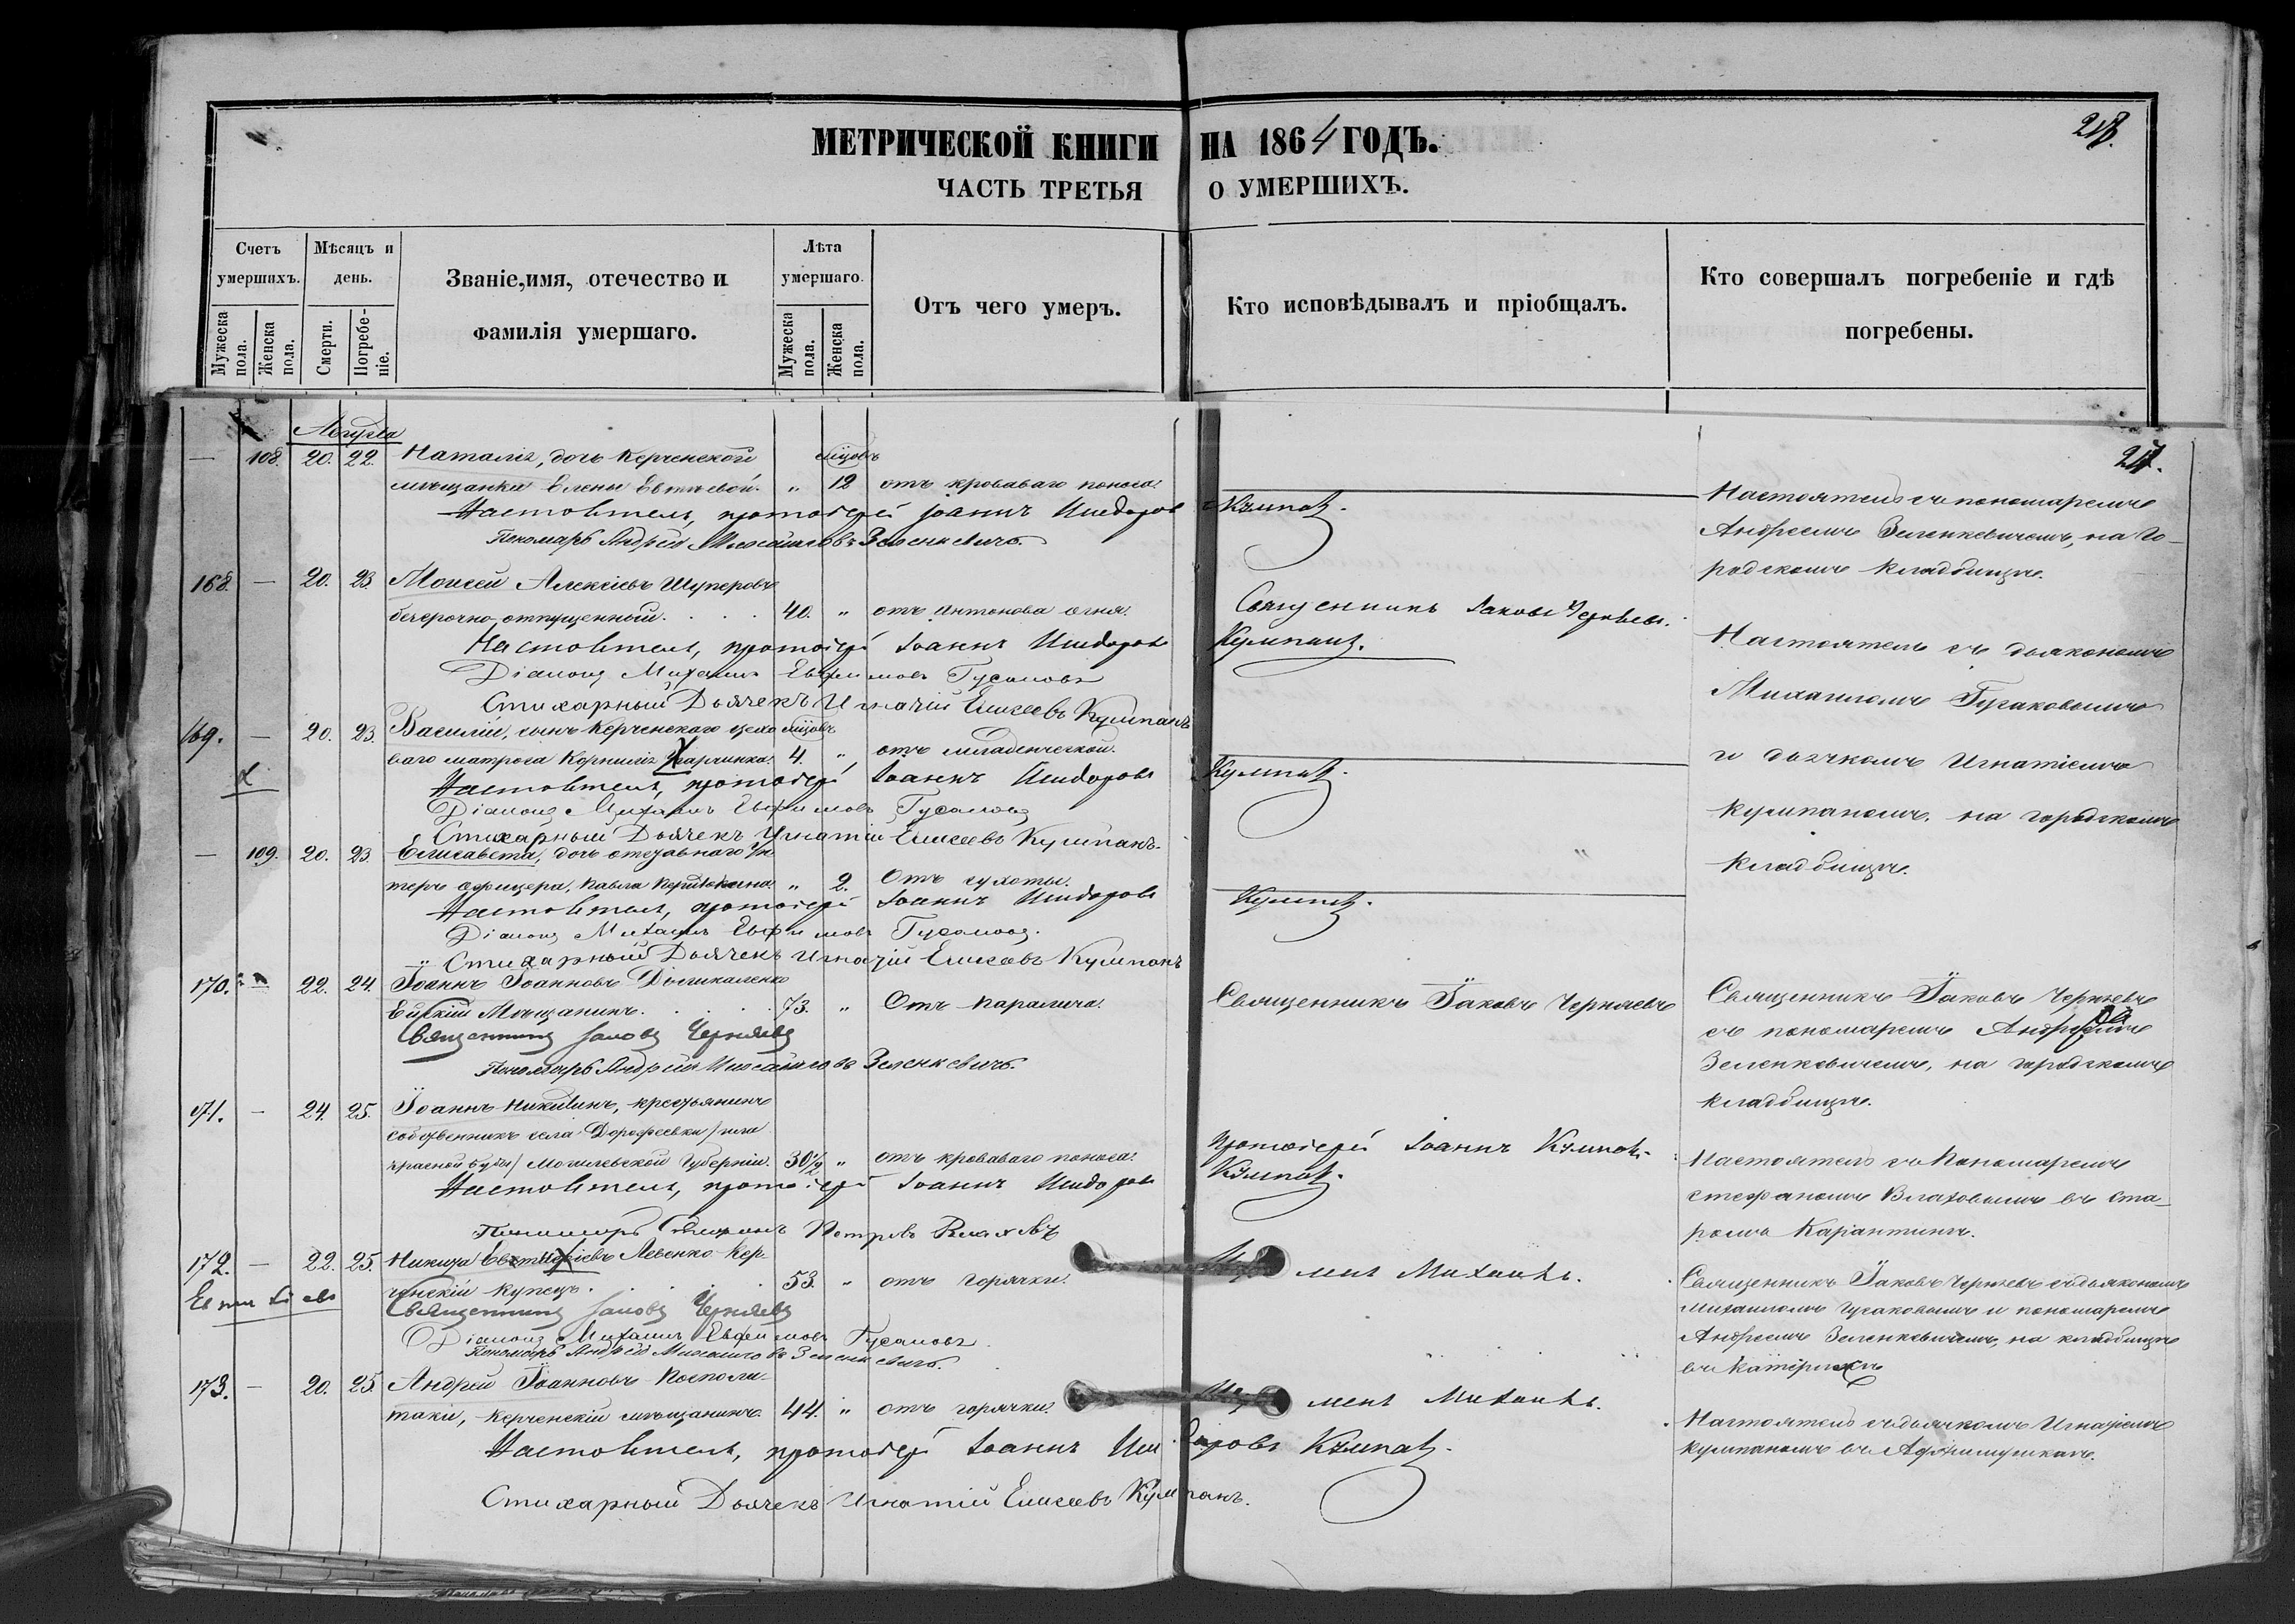 217.
МЕТРИЧЕСКОЙ КНИГИ НА 1864 ГОДЪ.
ЧАСТЬ ТРЕТЬЯ О УМЕРШИХЪ.
Счетъ умершихъ.
Мужеска пола.
Женска пола.
Мѣсяцъ и день.
Смерти.
Погребеніе.
Званіе, имя, отечество и
фамилія умершаго.
Лѣта умершаго.
Мужеска пола.
Женска пола.
Отъ чего умеръ.
Кто исповѣдывалъ и пріобщалъ.
Кто совершалъ погребеніе и гдѣ
погребены.
Августа
217.
— 108. 20. 22. Наталія, дочь Керченской мѣсцовъ
мѣщанки Елены „ 12 отъ кроваваго поноса.
Настоятель съ пономаремъ
Андреемъ Зеленкевичемъ, на го-
родскомъ кладбищѣ.
Настоятель, протоіерей Іоаннъ Исидоровъ Кумпанъ.
Пономарь Андрей Михайловъ Зеленкевичъ.
168. — 20. 23. Моисей Алексіевъ
безсрочно-отпущенный. 40. „ отъ Антонова огня.
Священникъ Іаковъ Черняевъ.
Настоятель, протоіерей Іоаннъ Исидоровъ Кумпанъ.
Діаконъ Михаилъ Евфимовъ Гусаковъ
Стихарный Дьячекъ Игнатій Елисеевъ Кумпанъ
Настоятель съ діакономъ
Михаиломъ Гусаковымъ
и дьячкомъ Игнатіемъ
Кумпаномъ, на городскомъ
кладбищѣ.
169. — 20. 23. Василій, сынъ Керченскаго цехо мѣсцовъ
ваго матроса Корнилія 4. „ отъ младенческой.
Настоятель, протоіерей Іоаннъ Исидоровъ Кумпанъ.
Діаконъ Михаилъ Евфимовъ Гусаковъ
Стихарный Дьячекъ Игнатій Елисеевъ Кумпанъ.
— 109. 20. 23. Елисавета, дочь отставного Ун
теръ офицера, Павла „ 2. Отъ сухоты.
Настоятель, протоіерей Іоаннъ Исидоровъ Кумпанъ.
Діаконъ Михаилъ Евфимовъ Гусаковъ.
Стихарный Дьячекъ Игнатій Елисеевъ Кумпанъ
170. — 22. 24. Іоаннъ Іоанновъ
Ейскій Мѣщанинъ. 73. „ Отъ паралича.
Священникъ Іаковъ Черняевъ
Священникъ Іаковъ Черняевъ
съ пономаремъ Андреемъ
Зеленкевичемъ, на городскомъ
кладбищѣ.
Священникъ Іаковъ Черняевъ
Пономарь Андрей Михайловъ Зеленкевичъ.
171. — 24. 25. Іоаннъ Никитинъ, крестьянинъ
собственникъ села Дорофеевки /или
красной буды/ Могилевской Губерніи. 30½ „ отъ кроваваго поноса.
Протоіерей Іоаннъ Кумпанъ.
Настоятель съ Пономаремъ
Стефаномъ Влаховымъ въ Ста-
ромъ Карантинѣ.
Настоятель, протоіерей Іоаннъ Исидоровъ Кумпанъ.
Пономарь Стефанъ Петровъ Влаховъ
172. — 22. 25. Никита Левенко Кер-
ченскій купецъ. 53. „ отъ горячки.
Михаилъ.
Священникъ Іаковъ Черняевъ съ діакономъ
Михаиломъ Гусаковымъ и пономаремъ
Андреемъ Зеленкевичемъ, на кладбищѣ
Священникъ Іаковъ Черняевъ
Діаконъ Михаилъ Евфимовъ Гусаковъ
Пономарь Андрей Михайловъ Зеленкевичъ.
173. — 20. 25. Андрей Іоанновъ Косполи-
таки, Керченскій мѣщанинъ. 44. „ отъ горячки.
Михаилъ.
Настоятель съ дьячкомъ Игнатіемъ
Кумпаномъ въ
Настоятель, протоіерей Іоаннъ Исидоровъ Кумпанъ.
Стихарный Дьячекъ Игнатій Елисеевъ Кумпанъ.